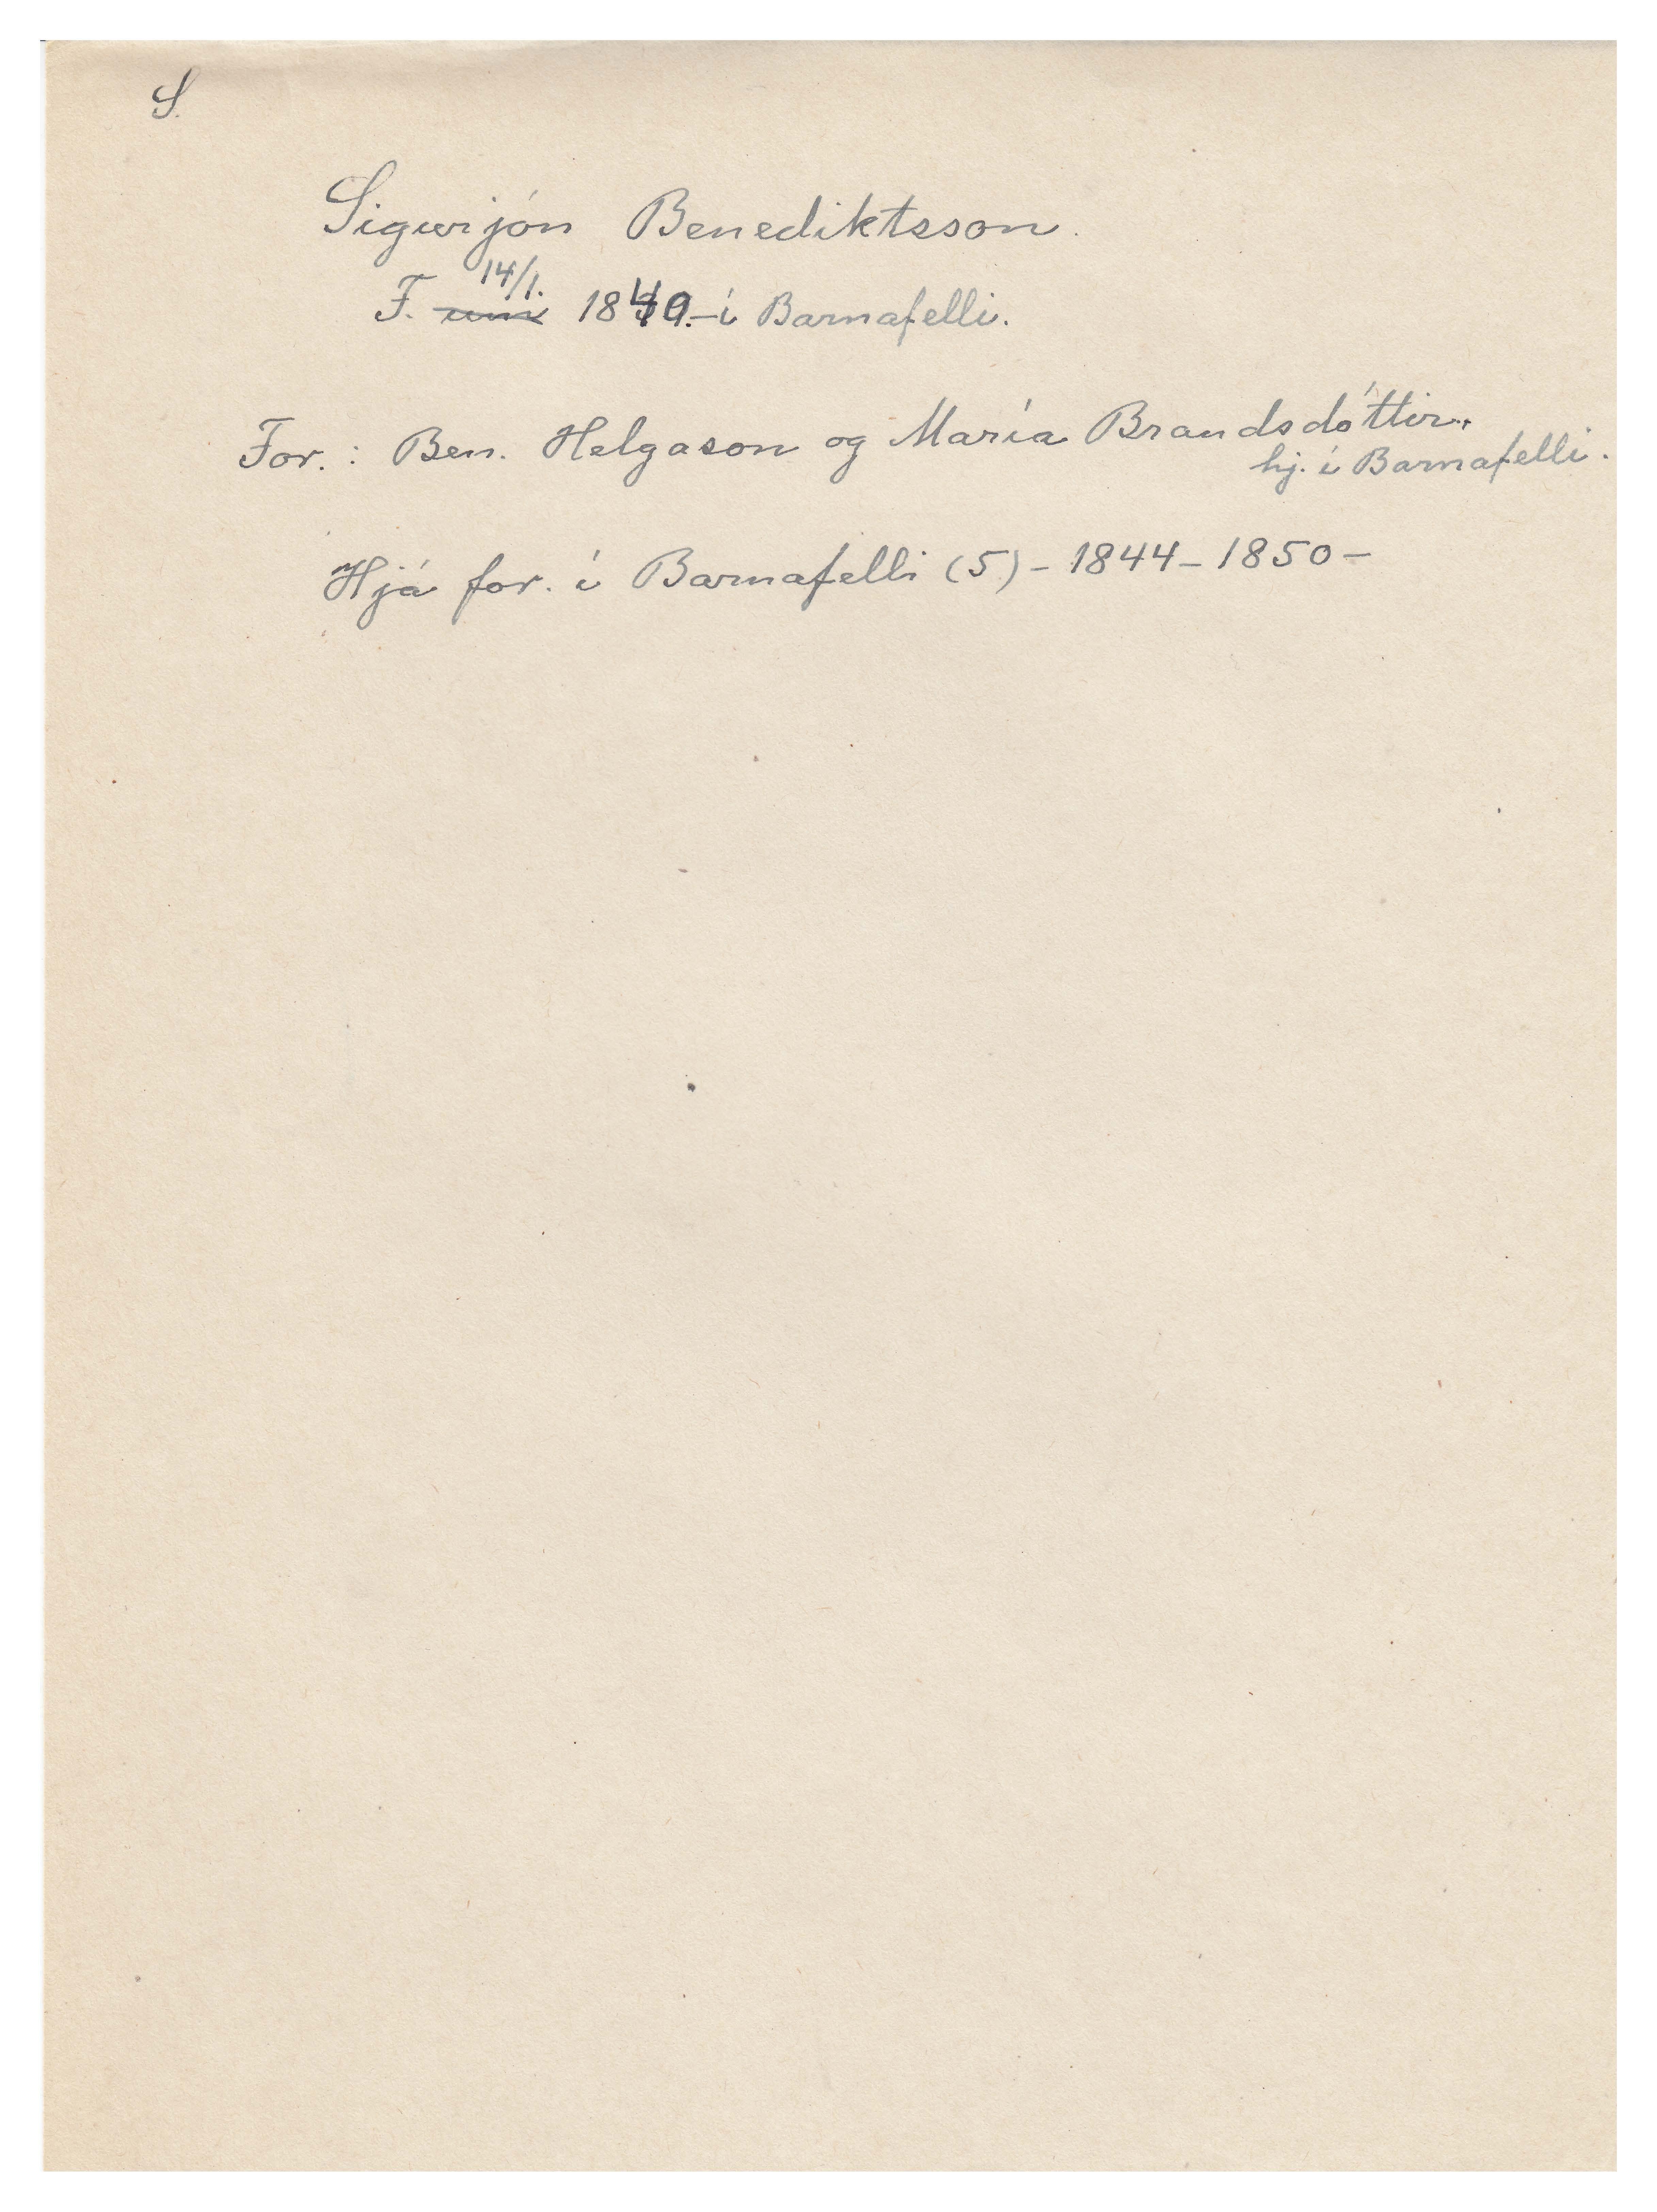 S.
Sigurjón Benediktsson.
14/1.
F. um 1840.- í Barnafelli.
For.: Ben. Helgason og María Brandsdóttir.,
hj. í Barnafelli.
Hjá for. í Barnafelli (5) - 1844 - 1850 -